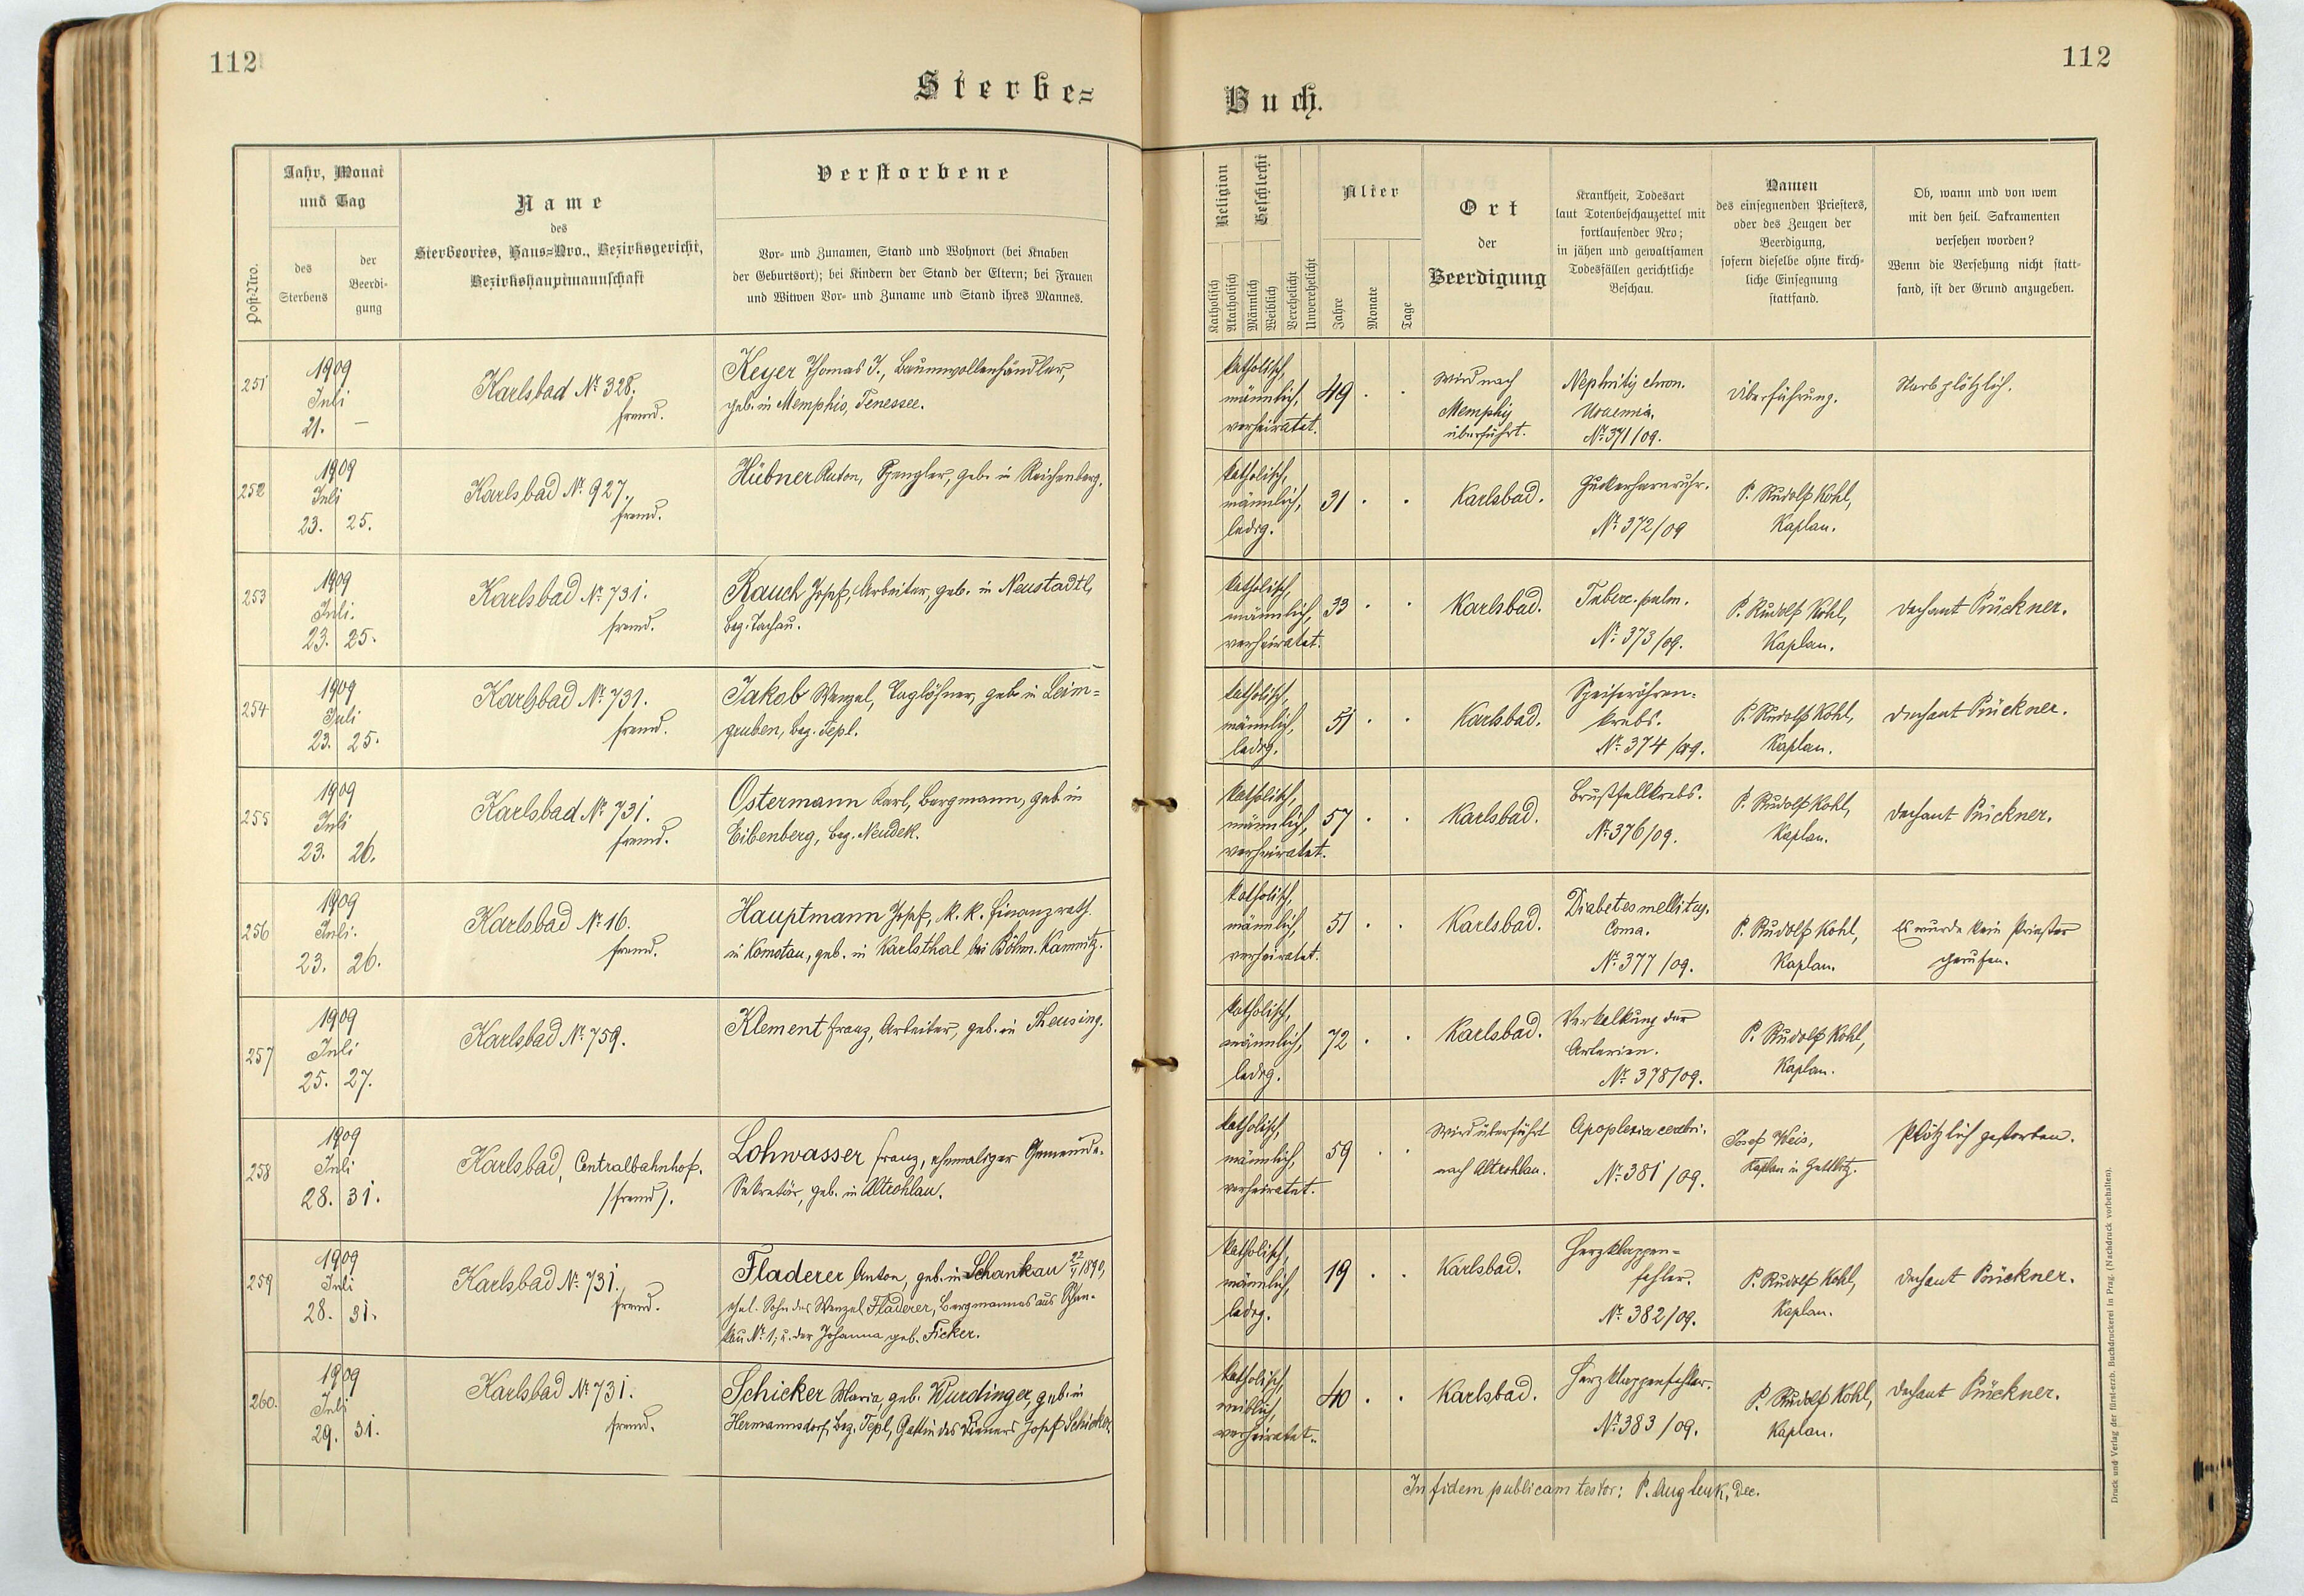 112
112
Sterbe=
Buch.
Post-Nro.
Jahr, Monat
und Tag
des
Sterbens
der
Beerdi-
gung
Name
des
Sterbeortes, Haus=Nro., Bezirksgericht,
Bezirkshauptmannschaft
Verstorbene
Vor- und Zunamen, Stand und Wohnort (bei Knaben
der Geburtsort); bei Kindern der Stand der Eltern; bei Frauen
und Witwen Vor- und Zuname und Stand ihres Mannes.
Religion
Katholisch
Akatholisch
Geschlecht
Männlich
Weiblich
Verehelicht
Unverehelicht
Alter
Jahre
Monate
Tage
Ort
der
Beerdigung
Krankheit, Todesart
laut Totenbeschauzettel mit
fortlaufender Nro;
in jähen und gewaltsamen
Todesfällen gerichtliche
Beschau.
Namen
des einsegnenden Priesters,
oder des Zeugen der
Beerdigung,
sofern dieselbe ohne kirch-
liche Einsegnung
stattfand.
Ob, wann und von wem
mit den heil. Sakramenten
versehen worden?
Wenn die Versehung nicht statt-
fand, ist der Grund anzugeben.
251
1909
Juli
21. —
Karlsbad Nº 328.
fremd.
Keyer Thomas J., Baumwollenhändler,
geb. in Memphis, Tenessee.
katholisch,
männlich,
verheiratet.
49 . .
Wird nach
Memphis
überführt.
Nephritis chron.
Uraemia.
Nº 371/09.
Überführung.
Starb plötzlich.
252
1909
Juli
23. 25.
Karlsbad Nº 927.
fremd.
Hübner Anton, Spengler, geb. in Reichenberg.
katholisch,
männlich,
ledig.
31 . .
Karlsbad.
Zuckerharnruhr.
Nº 372/09
P. Rudolf Kohl,
Kaplan.
253
1909
Juli.
23. 25.
Karlsbad Nº 731.
fremd.
Rauch Josef, Arbeiter, geb. in Neustadtl,
Bez. Tachau.
katholisch,
männlich,
verheiratet.
33 . .
Karlsbad.
Tuberc. pulm.
Nº 373/09.
P. Rudolf Kohl,
Kaplan.
Dechant Prückner.
254
1909
Juli
23. 25.
Karlsbad Nº 731.
fremd.
Jakob Wenzel, Taglöhner, geb. in Leim=
gruben, Bez. Tepl.
katholisch,
männlich,
ledig.
51 . .
Karlsbad.
Speiseröhren-
krebs.
Nº 374/09.
P. Rudolf Kohl,
Kaplan.
Dechant Prückner.
255
1909
Juli
23. 26.
Karlsbad Nº 731.
fremd.
Ostermann Karl, Bergmann, geb. in
Eibenberg, Bez. Neudek.
katholisch,
männlich,
verheiratet.
57 . .
Karlsbad.
Brustfellkrebs.
Nº 376/09.
P. Rudolf Kohl,
Kaplan.
Dechant Prückner.
256
1909
Juli.
23. 26.
Karlsbad Nº 16.
fremd.
Hauptmann Josef, K. K. Finanzrath
in Komotau, geb. in Karlsthal bei Böhm. Kamnitz.
katholisch,
männlich,
verheiratet.
51 . .
Karlsbad.
Diabetes mellitus,
Coma.
Nº 377/09.
P. Rudolf Kohl,
Kaplan.
Es wurde kein Priester
gerufen.
257
1909
Juli
25. 27.
Karlsbad Nº 759.
Klement Franz, Arbeiter, geb. in Theusing.
katholisch,
männlich,
ledig.
72 . .
Karlsbad.
Verkalkung der
Arterien.
Nº 378/09.
P. Rudolf Kohl,
Kaplan.
258
1909
Juli
28. 31.
Karlsbad, Centralbahnhof.
/fremd/.
Lohwasser Franz, ehemaliger Gemeinde-
Sekretär, geb. in Altrohlau.
katholisch,
männlich,
verheiratet.
59 . .
Wird überführt
nach Altrohlau.
Apoplexia cerebri.
Nº 381/09.
Josef Weis,
Kaplan in
Plötzlich gestorben.
259
1909
Juli
28. 31.
Karlsbad Nº 731.
fremd.
Fladerer Anton, geb. in Schankau 22/V 1890,
ehel. Sohn des Wenzel Fladerer, Bergmannes aus Schan-
kau Nº 1, u. der Johanna geb. Ficker.
katholisch,
männlich,
ledig.
19 . .
Karlsbad.
Herzklappen=
fehler.
Nº 382/09.
P. Rudolf Kohl,
Kaplan.
Dechant Prückner.
260.
1909
Juli
29. 31.
Karlsbad Nº 731.
fremd.
Schicker Maria, geb. Wurdinger, geb. in
Hermannsdorf, Bez. Tepl, Gattin des Dieners Josef Schicker.
katholisch,
weiblich,
verheiratet.
40 . .
Karlsbad.
Herzklappenfehler.
Nº 383/09.
P. Rudolf Kohl,
Kaplan.
Dechant Prückner.
In fidem publicam testor: P. Aug Leuk, Dec.
Druck und Verlag der fürst-erzb. Buchdruckerei in Prag. (Nachdruck vorbehalten).